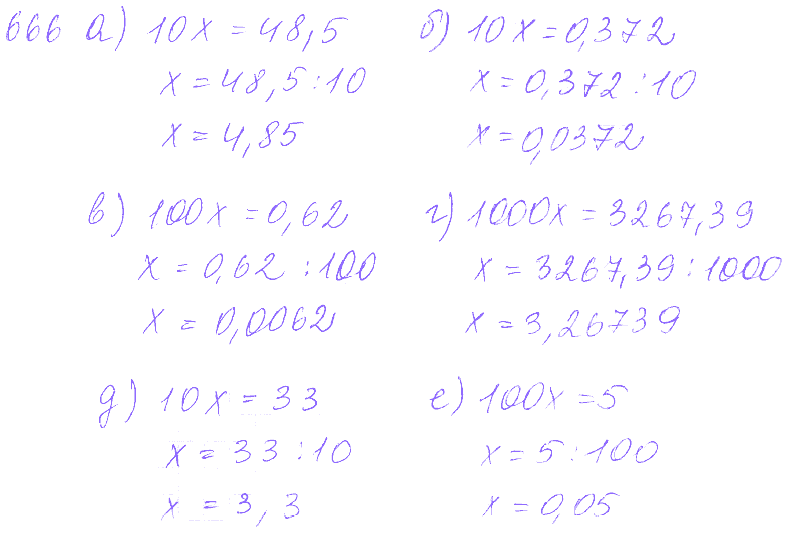 666 а) 10x = 48,5
x = 48,5 : 10
x = 4,85
б) 10x = 0,372
x = 0,372 : 10
x = 0,0372
в) 100x = 0,62
x = 0,62 : 100
x = 0,0062
г) 1000x = 3267,39
x = 3267,39 : 1000
x = 3,26739
д) 10x = 33
x = 33 : 10
x = 3,3
е) 100x = 5
x = 5 : 100
x = 0,05